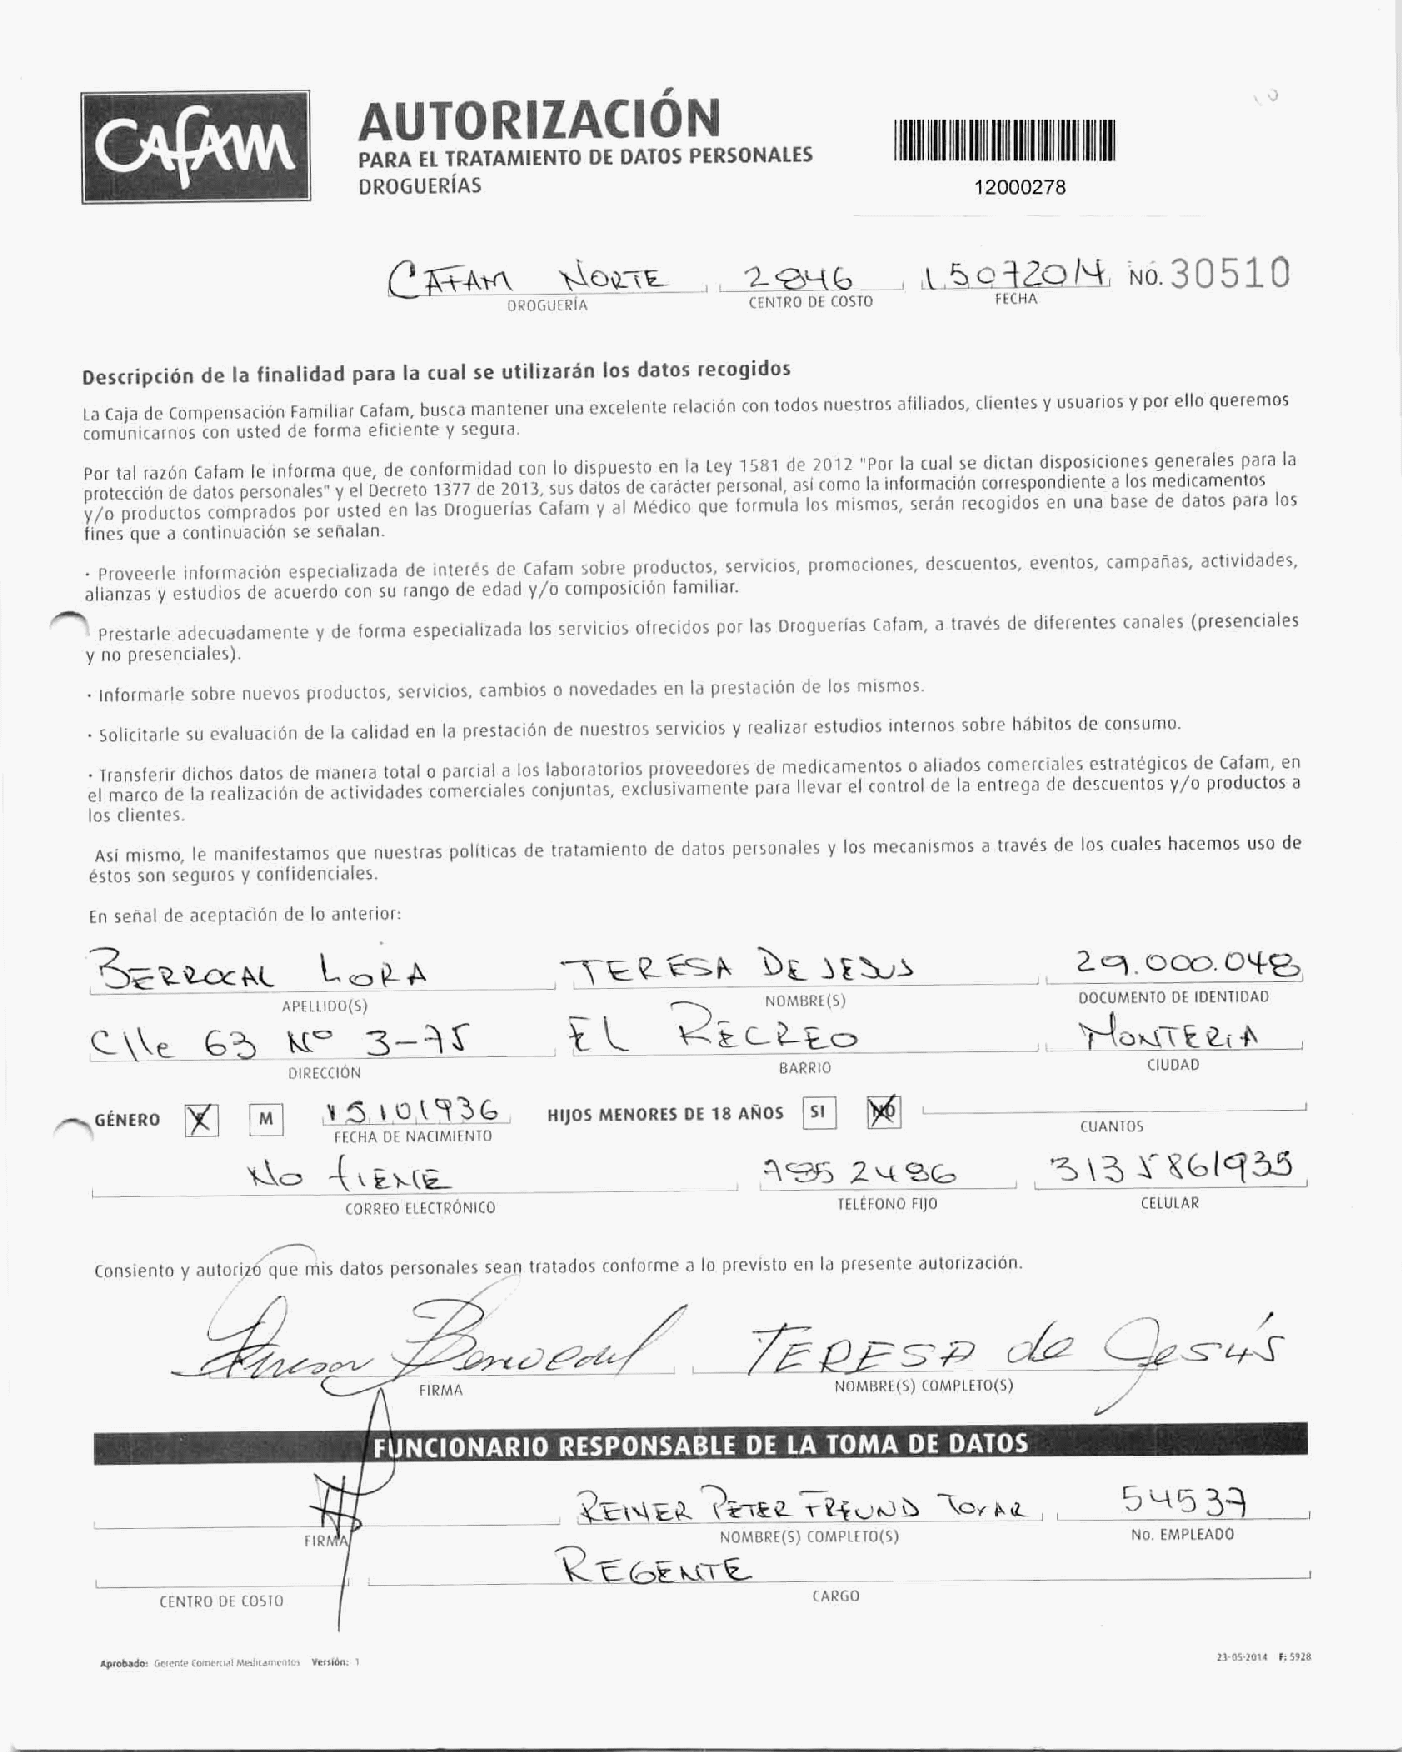 CAFAM
AUTORIZACIÓN
PARA EL TRATAMIENTO DE DATOS PERSONALES
DROGUERÍAS
12000278
CAFAM NORTE 2846 15072014 NO. 30510
DROGUERÍA CENTRO DE COSTO FECHA
Descripción de la finalidad para la cual se utilizarán los datos recogidos
La Caja de Compensación Familiar Cafam, busca mantener una excelente relación con todos nuestros afiliados, clientes y usuarios y por ello queremos
comunicarnos con usted de forma eficiente y segura.
Por tal razón Cafam le informa que, de conformidad con lo dispuesto en la Ley 1581 de 2012 "Por la cual se dictan disposiciones generales para la
protección de datos personales" y el Decreto 1377 de 2013, sus datos de carácter personal, así como la información correspondiente a los medicamentos
y/o productos comprados por usted en las Droguerías Cafam y al Médico que formula los mismos, serán recogidos en una base de datos para los
fines que a continuación se señalan.
· Proveerle información especializada de interés de Cafam sobre productos, servicios, promociones, descuentos, eventos, campañas, actividades,
alianzas y estudios de acuerdo con su rango de edad y/o composición familiar.
Prestarle adecuadamente y de forma especializada los servicios ofrecidos por las Droguerías Cafam, a través de diferentes canales (presenciales
y no presenciales).
· Informarle sobre nuevos productos, servicios, cambios o novedades en la prestación de los mismos.
· Solicitarle su evaluación de la calidad en la prestación de nuestros servicios y realizar estudios internos sobre hábitos de consumo.
· Transferir dichos datos de manera total o parcial a los laboratorios proveedores de medicamentos o aliados comerciales estratégicos de Cafam, en
el marco de la realización de actividades comerciales conjuntas, exclusivamente para llevar el control de la entrega de descuentos y/o productos a
los clientes.
Así mismo, le manifestamos que nuestras políticas de tratamiento de datos personales y los mecanismos a través de los cuales hacemos uso de
éstos son seguros y confidenciales.
En señal de aceptación de lo anterior:
BERROCAL LORA TERESA DE JESUS 29.000.048
APELLIDO(S) NOMBRE(S) DOCUMENTO DE IDENTIDAD
Clle 63 Nº 3-75 EL RECREO MONTERIA
DIRECCIÓN BARRIO CIUDAD
GÉNERO X M 15101936 HIJOS MENORES DE 18 AÑOS SI NO
FECHA DE NACIMIENTO CUANTOS
No tiENE 7852486 3135861935
CORREO ELECTRÓNICO TELÉFONO FIJO CELULAR
Consiento y autorizo que mis datos personales sean tratados conforme a lo previsto en la presente autorización.
TERESA de Jesús
FIRMA NOMBRE(S) COMPLETO(S)
FUNCIONARIO RESPONSABLE DE LA TOMA DE DATOS
REINER PETER FREUND TOVAR 54537
FIRMA NOMBRE(S) COMPLETO(S) No. EMPLEADO
REGENTE
CENTRO DE COSTO CARGO
Aprobado: Gerente Comercial Medicamentos Versión: 1 23-05-2014 F: 5928